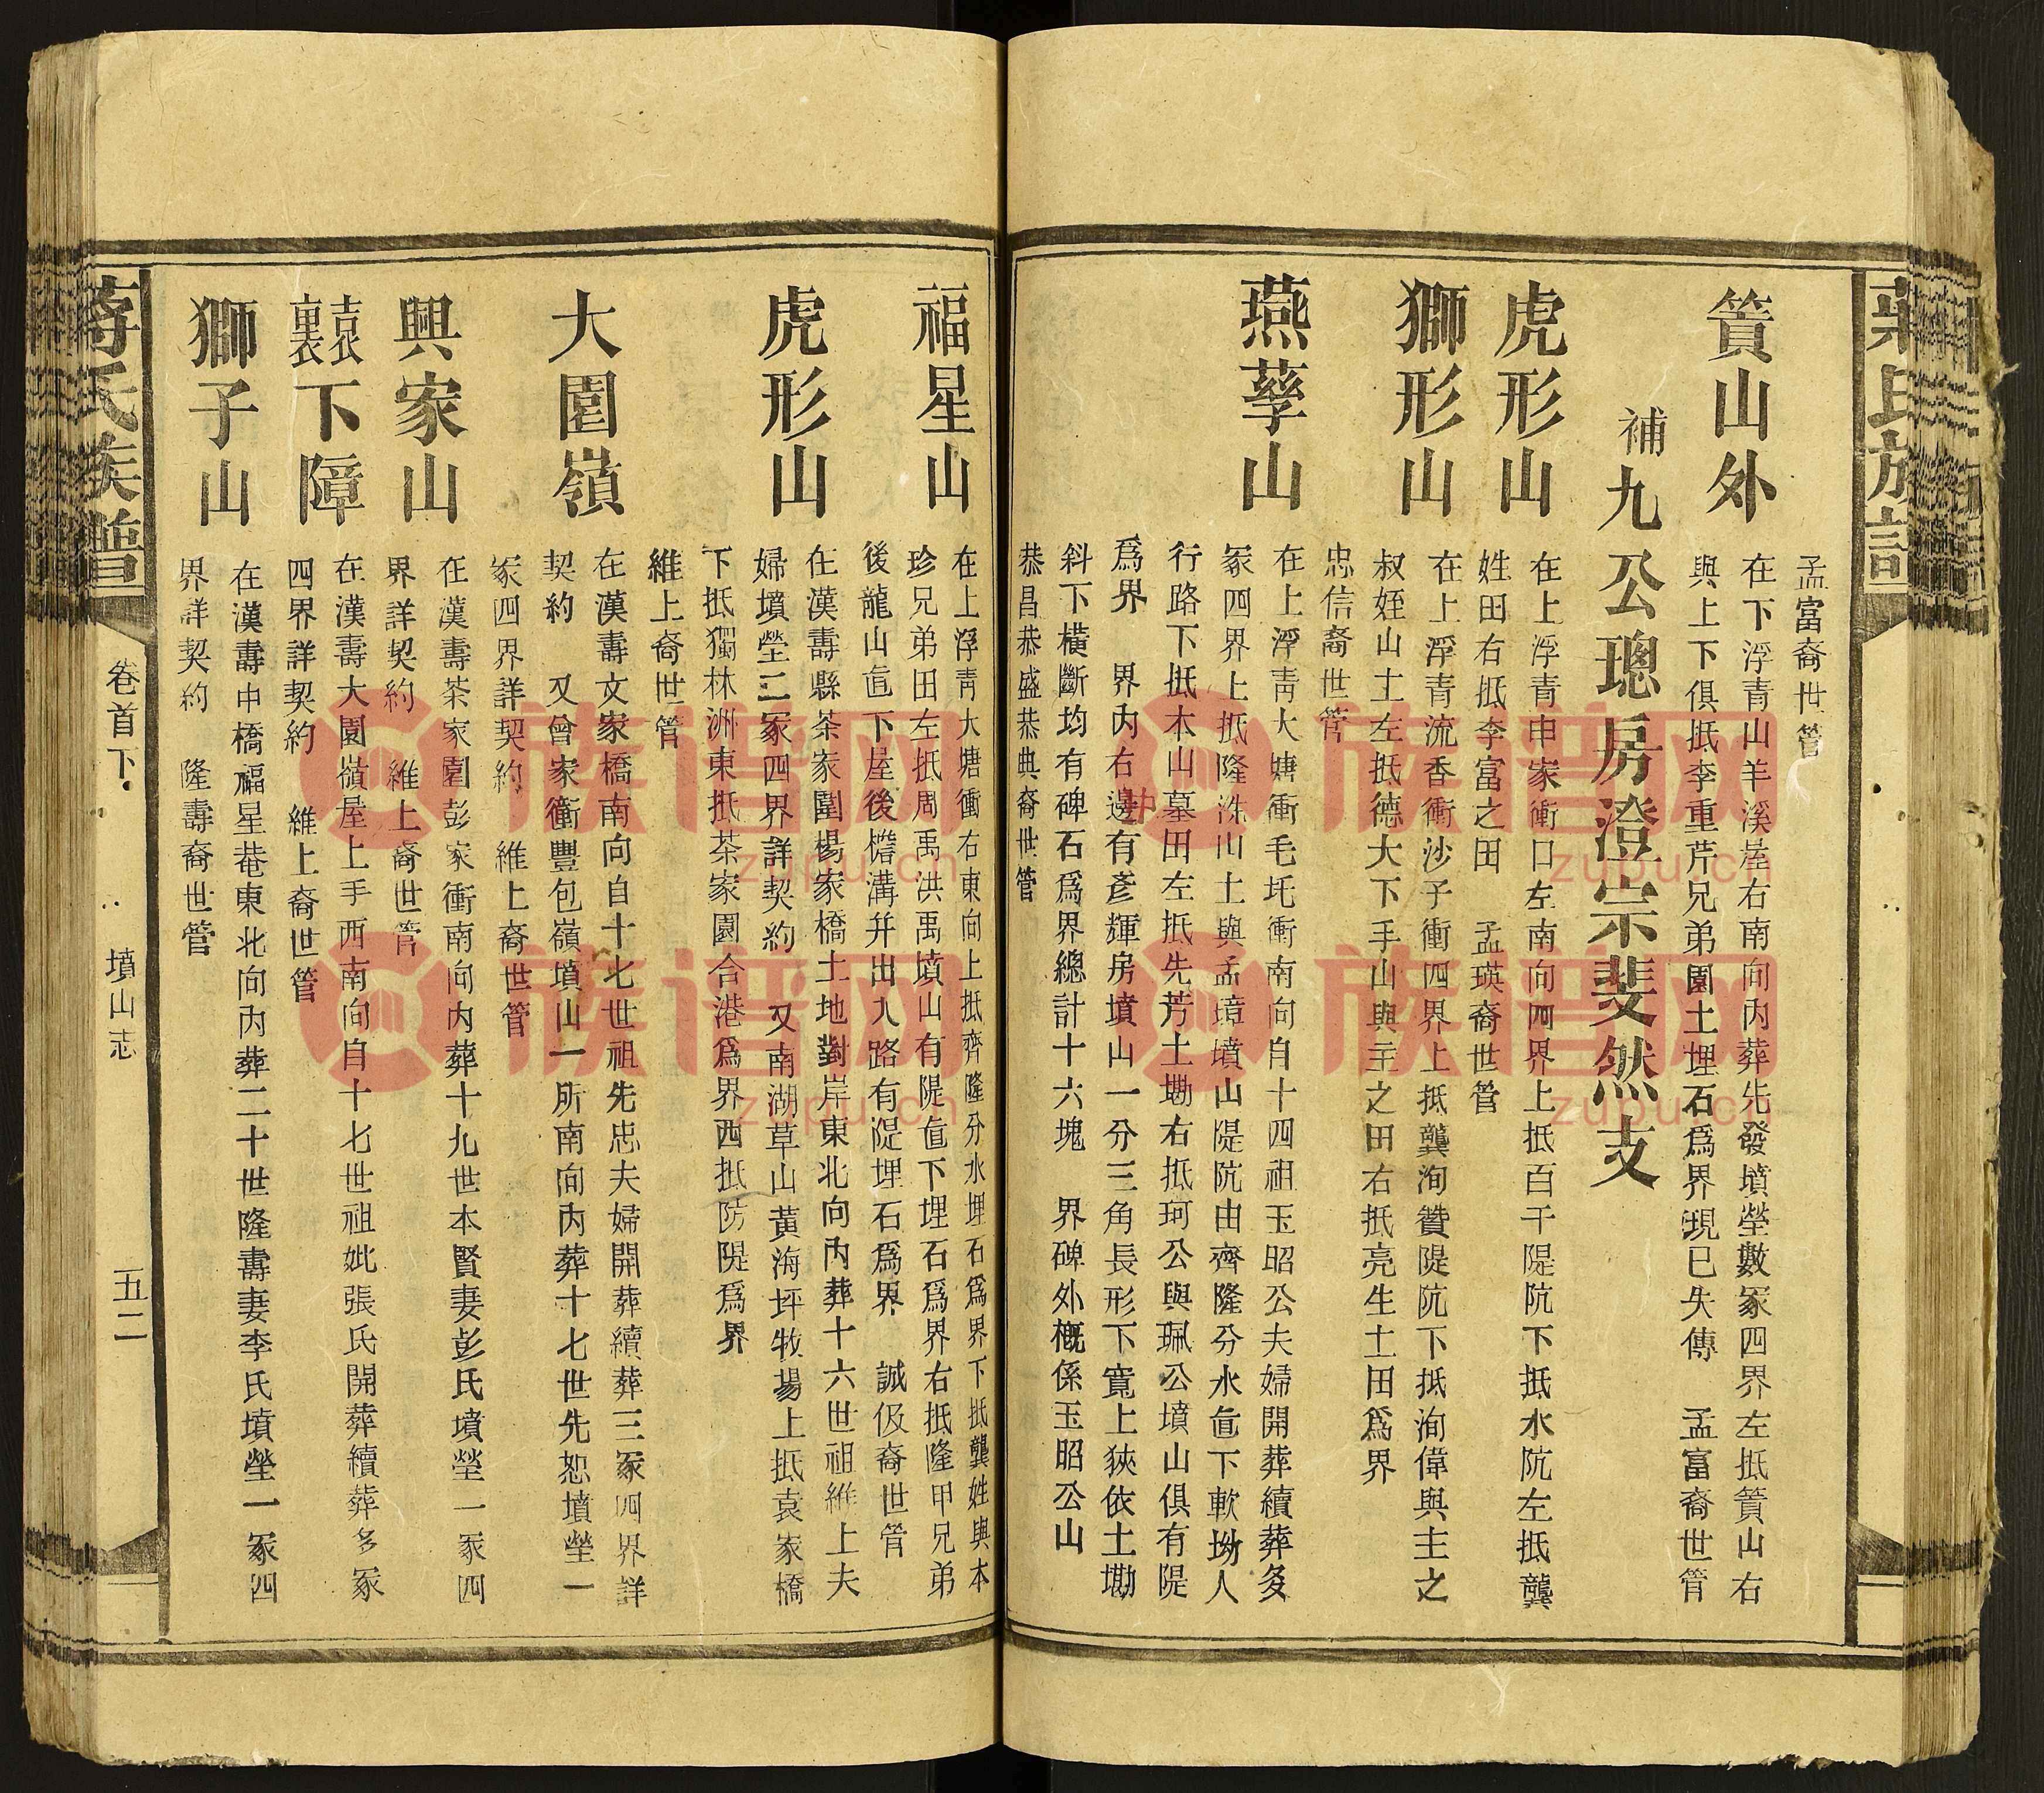 孟富裔世管
簣山外
在下浮青山羊溪屋右南向內葬先發墳塋數冢四界左抵簣山右
與上下俱抵李重芹兄弟園土埋石爲界現已失傳　孟富裔世管
補九公璁房澄宗斐然支
虎形山
在上浮青申家衝口左南向四界上抵百干隄阬下抵水阬左抵龔
姓田右抵李富之田　孟瑛裔世管
獅形山
在上浮青流香衝沙子衝四界上抵龔洵贊隄阬下抵洵偉與主之
叔姪山土左抵德大下手山與主之田右抵亮生土田爲界
忠信裔世管
燕孳山
在上浮青大塘衝毛坵衝南向自十四祖玉昭公夫婦開葬續葬多
冢四界上抵隆洙山土與孟璋墳山隄阬由齊隆分水直下軟坳人
行路下抵本山墓田左抵先芳土磡右抵珂公與珮公墳山俱有隄
爲界　界內右邊有彥輝房墳山一分三角長形下寬上狹依土磡
斜下橫斷均有碑石爲界總計十六塊　界碑外槪係玉昭公山
恭昌恭盛恭典裔世管
福星山
在上浮靑大塘衝右東向上抵齊隆分水埋石爲界下抵龔姓與本
珍兄弟田左抵周禹洪禹墳山有隄直下埋石爲界右抵隆甲兄弟
後龍山直下屋後檐溝幷出入路有隄埋石爲界　誠伋裔世管
虎形山
在漢壽縣茶家園楊家橋土地對岸東北向內葬十六世祖維上夫
婦墳塋二冢四界詳契約　又南湖草山黃海坪牧場上抵袁家橋
下抵獨林洲東抵茶家園合港爲界西抵防隄爲界
維上裔世管
大園嶺
在漢壽文家橋南向自十七世祖先忠夫婦開葬續葬三冢四界詳
契約　又曾家衝豐包嶺墳山一所南向內葬十七世先恕墳塋一
冢四界詳契約　維上裔世管
興家山
在漢壽茶家園彭家衝南向內葬十九世本賢妻彭氏墳塋一冢四
界詳契約　維上裔世管
袁裏下障
在漢壽大園嶺屋上手西南向自十七世祖妣張氏開葬續葬多冢
四界詳契約　維上裔世管
獅子山
在漢壽中橋福星菴東北向內葬二十世隆壽妻李氏墳塋一冢四
界詳契約　隆壽裔世管
蔣氏族譜
卷首下
墳山志
五二
族谱网
zupu.cn
族谱网
zupu.cn
族谱网
zupu.cn
族谱网
zupu.cn